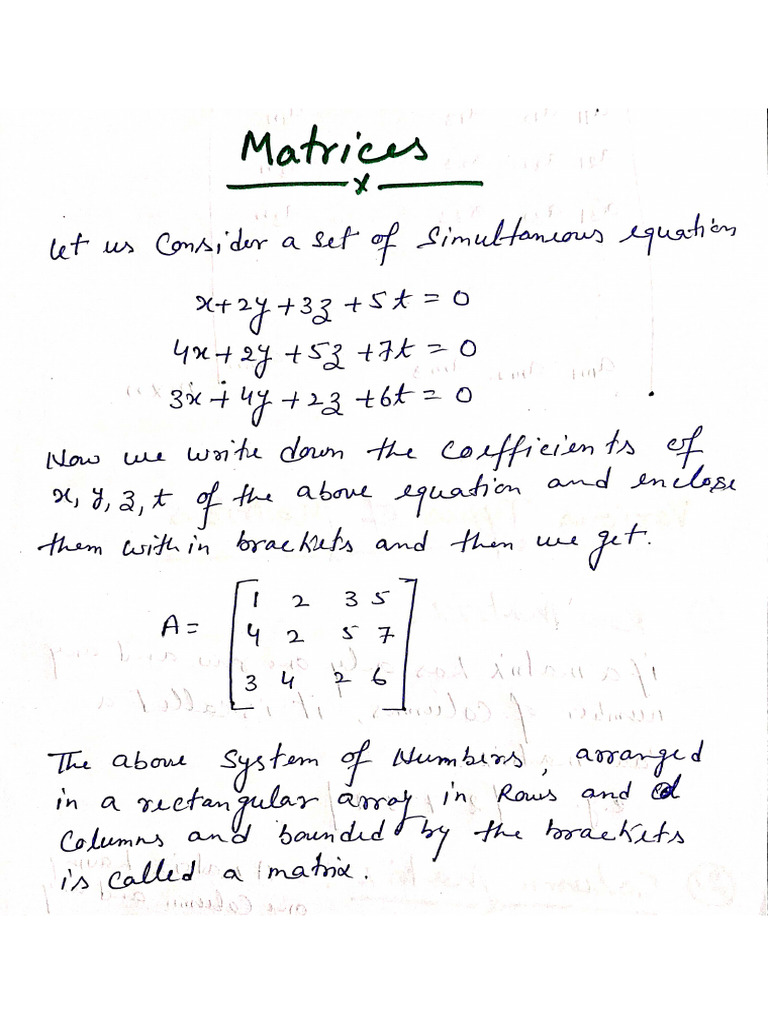 Matrices
x
Let us Consider a set of Simultaneous equation
x+2y+3z+5t=0
4x+2y+5z+7t=0
3x+4y+2z+6t=0
Now we write down the coefficients of
x, y, z, t of the above equation and enclose
them within brackets and then we get.
A= [ 1 2 3 5
4 2 5 7
3 4 2 6 ]
The above System of Numbers, arranged
in a rectangular array in Rows and
Columns and bounded by the brackets
is called a matrix.